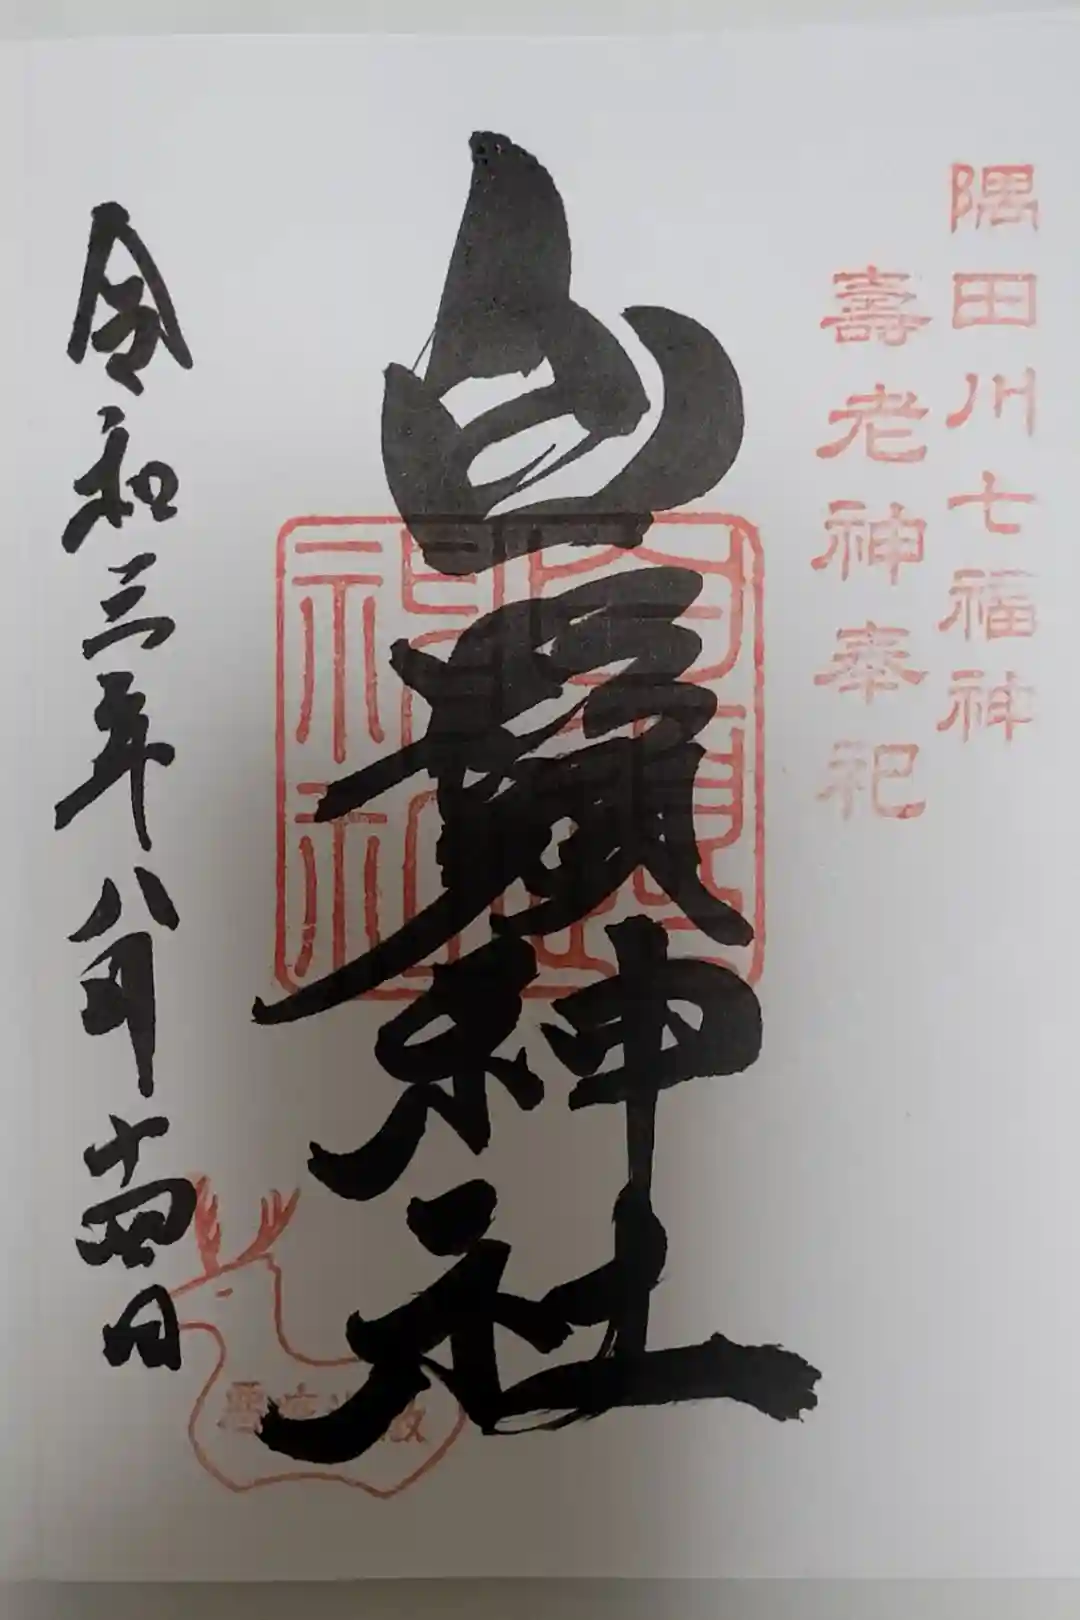 隅田川七福神
壽老神奉祀
白鬚神社
白鬚
神社
令和三年八月十四日